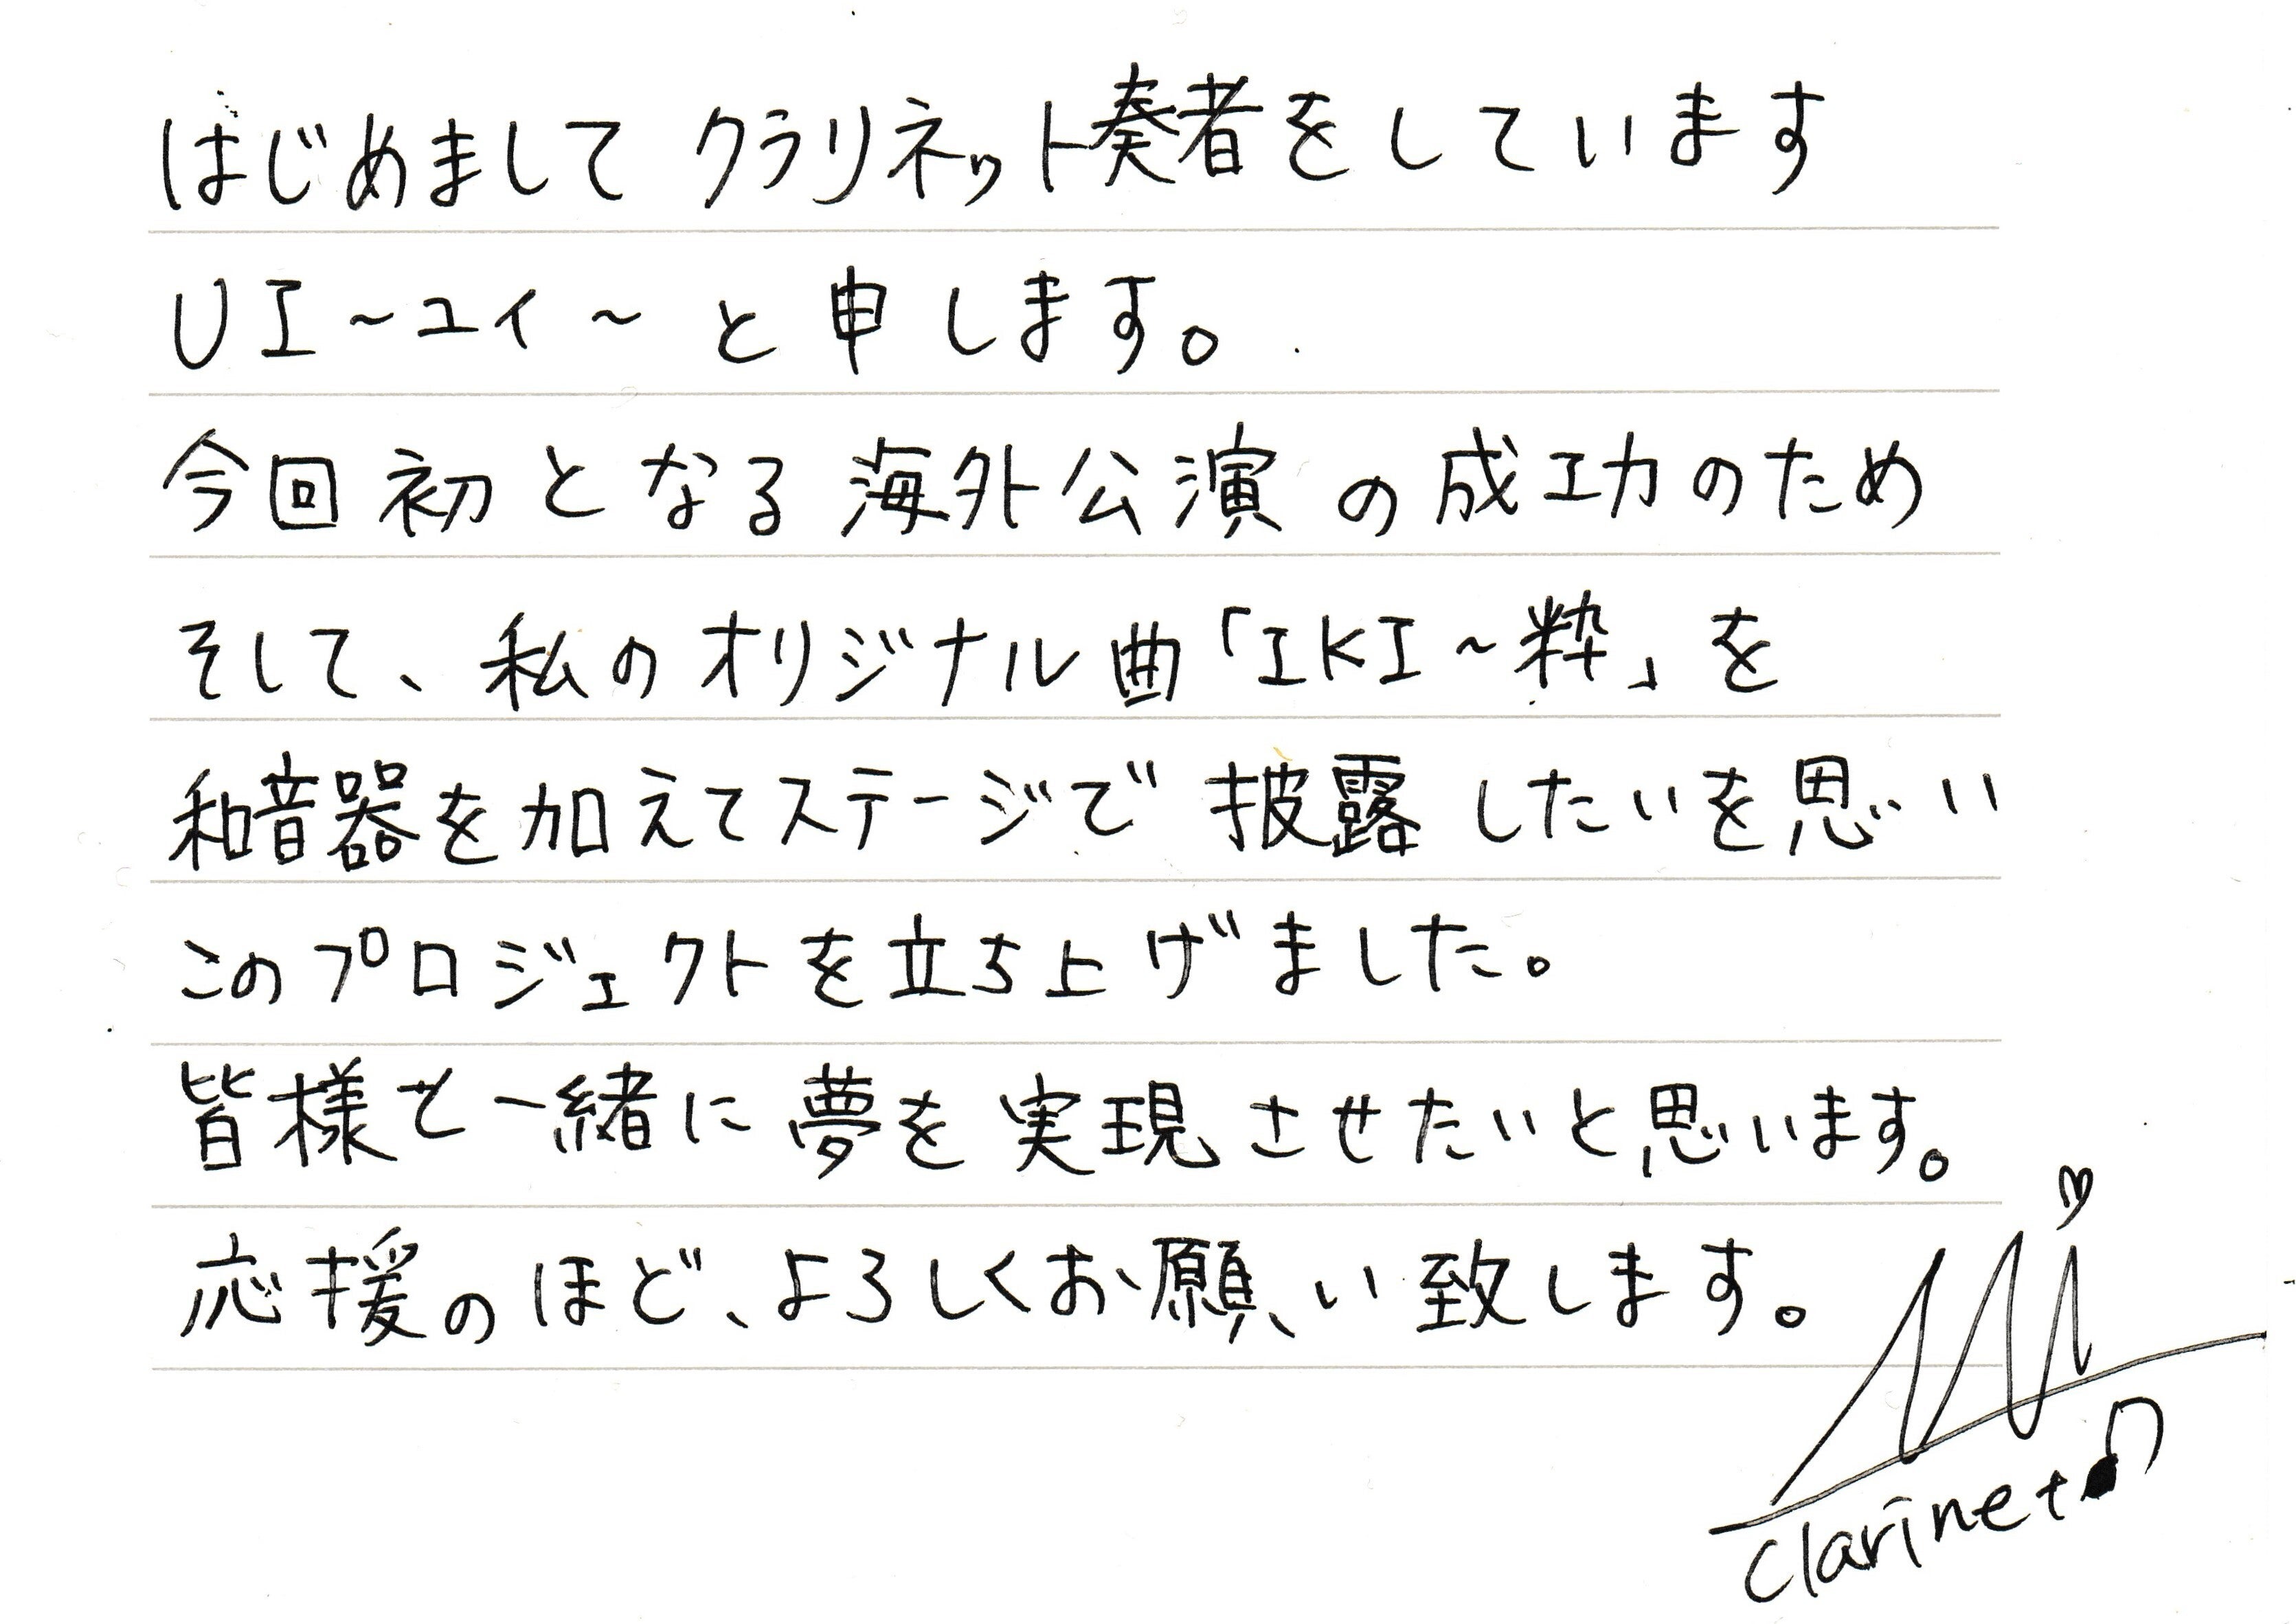 はじめまして クラリネット奏者をしています
UI～ユイ～と申します。
今回初となる海外公演の成功のため
そして、私のオリジナル曲「IKI～粋」を
和音器を加えてステージで披露したいを思い
このプロジェクトを立ち上げました。
皆様と一緒に夢を実現させたいと思います。
応援のほど、よろしくお願い致します。
clarinet